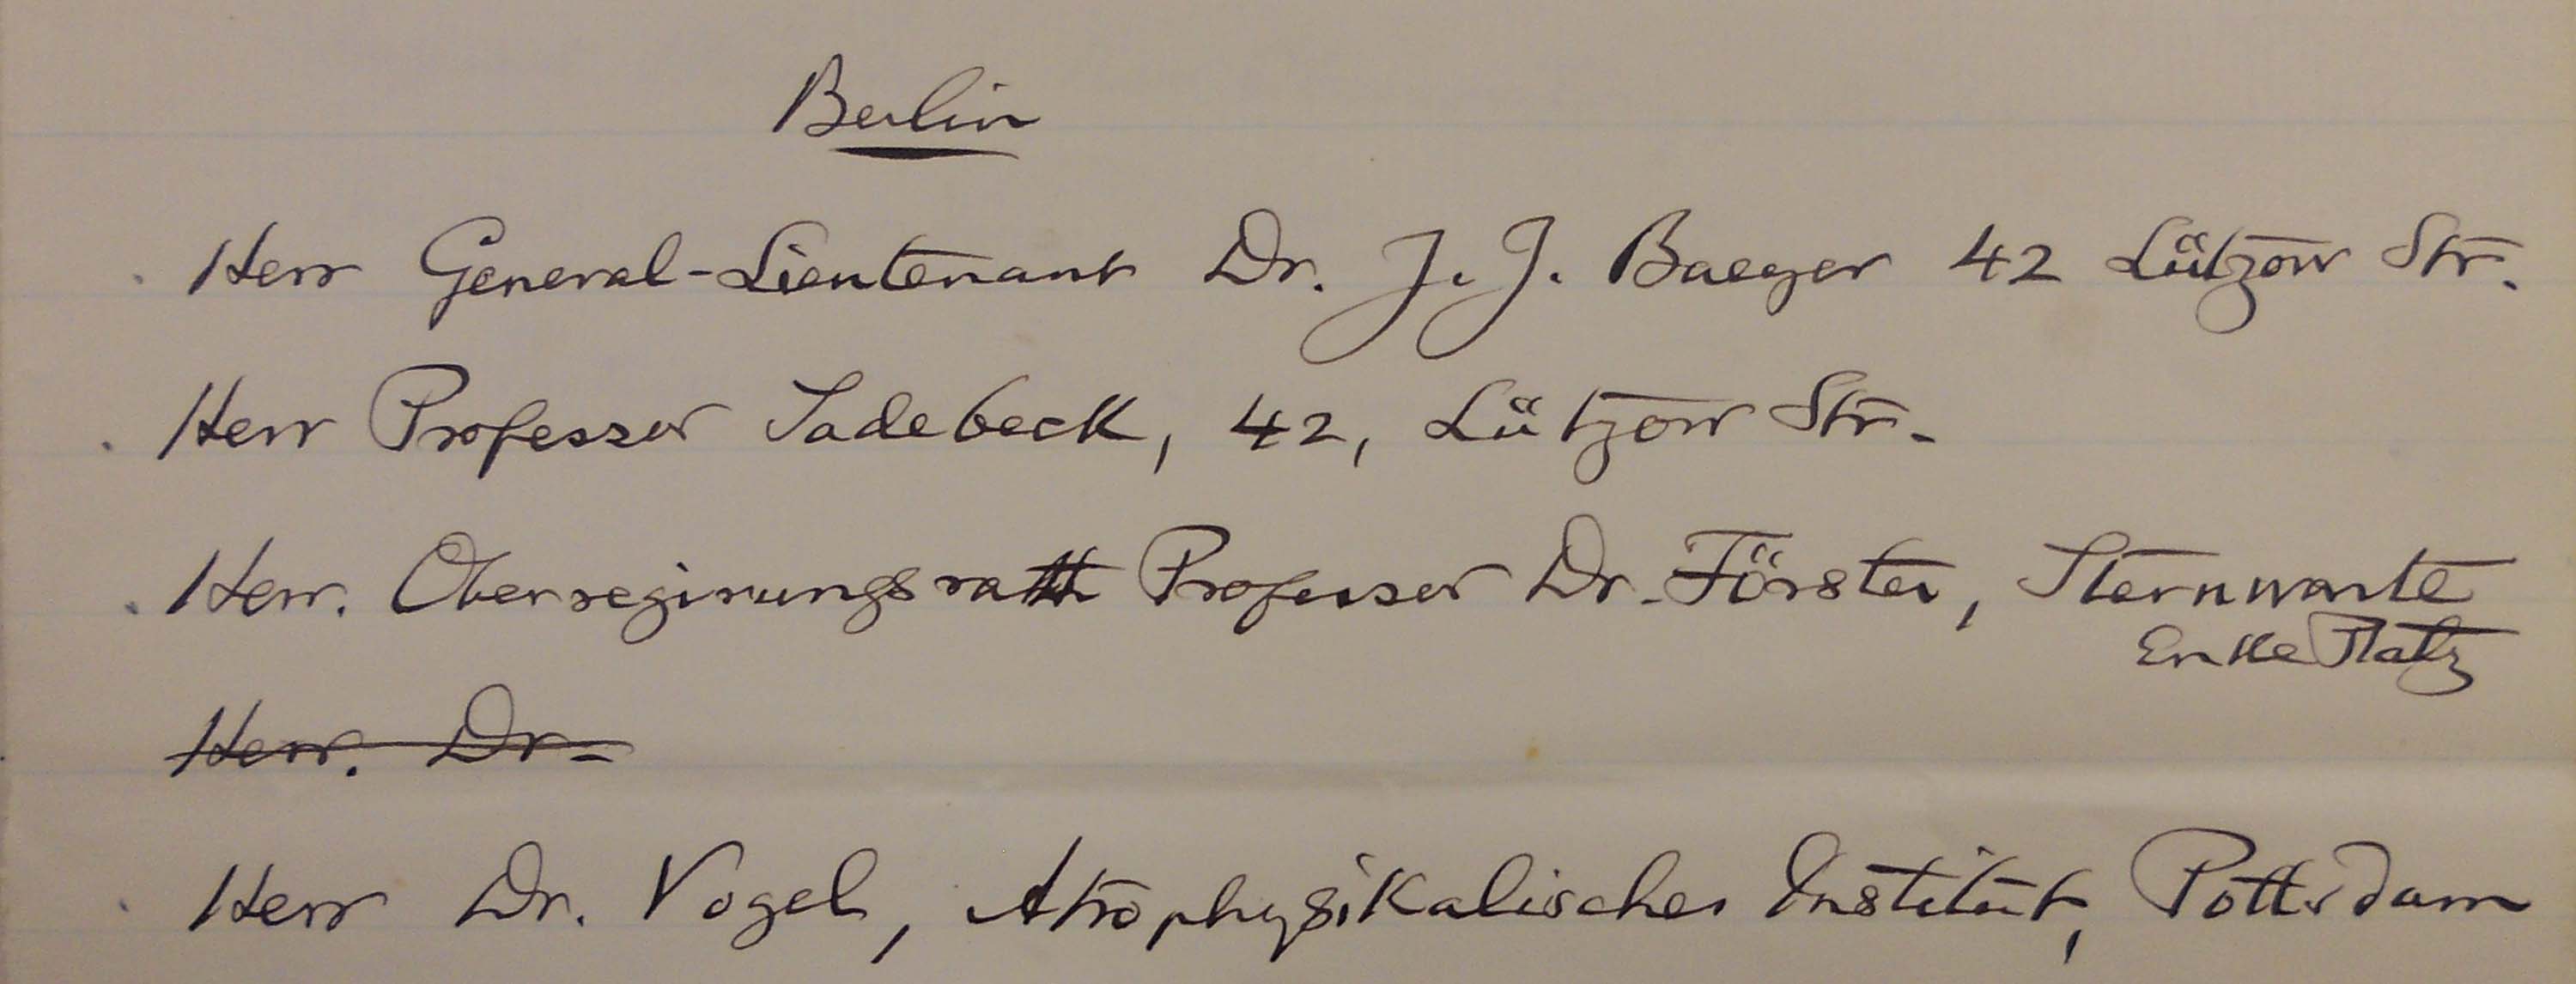 Berlin
Herr General-Lieutenant Dr. J. J. Baeyer 42 Lützow Str.
Herr Professor Sadebeck, 42, Lützow Str.
Herr. Oberregirungsrath Professor Dr. Förster, Sternwarte
Enke Platz
Herr. Dr.
Herr Dr. Vogel, Atrophysikalisches Institut, Pottsdam